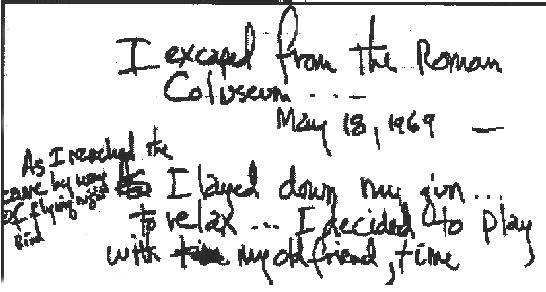 I excaped from the Roman
Coluseum . . . —
May 18, 1969 —
As I reached the
cave by way
of flying
Bird
I layed down my gun...
to relax... I decided to play
with my old friend, time